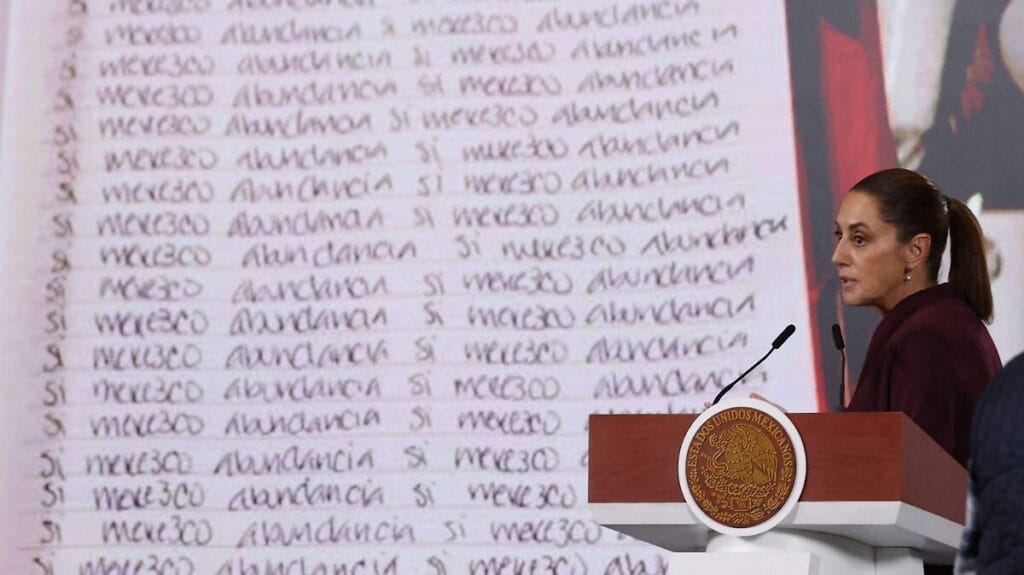 si merezco abundancia si merezco abundancia
si merezco abundancia si merezco abundancia
si merezco abundancia si merezco abundancia
si merezco abundancia si merezco abundancia
si merezco abundancia si merezco abundancia
si merezco abundancia si merezco abundancia
si merezco abundancia si merezco abundancia
si merezco abundancia si merezco abundancia
si merezco abundancia si merezco abundancia
si merezco abundancia si merezco abundancia
si merezco abundancia si merezco abundancia
si merezco abundancia si merezco abundancia
si merezco abundancia si merezco
si merezco abundancia si merezco
si merezco abundancia si merezco
si merezco abundancia si merezco
si merezco abundancia si merezco
ESTADOS UNIDOS MEXICANOS